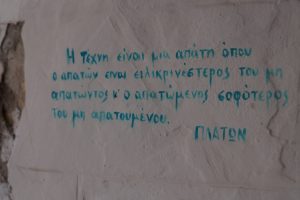 Η Τέχνη είναι μια απάτη όπου
ο απατών είναι ειλικρινέστερος του μη
απατώντος κ' ο απατώμενης σοφότερος
του μη απατουμένου.
ΠΛΑΤΩΝ